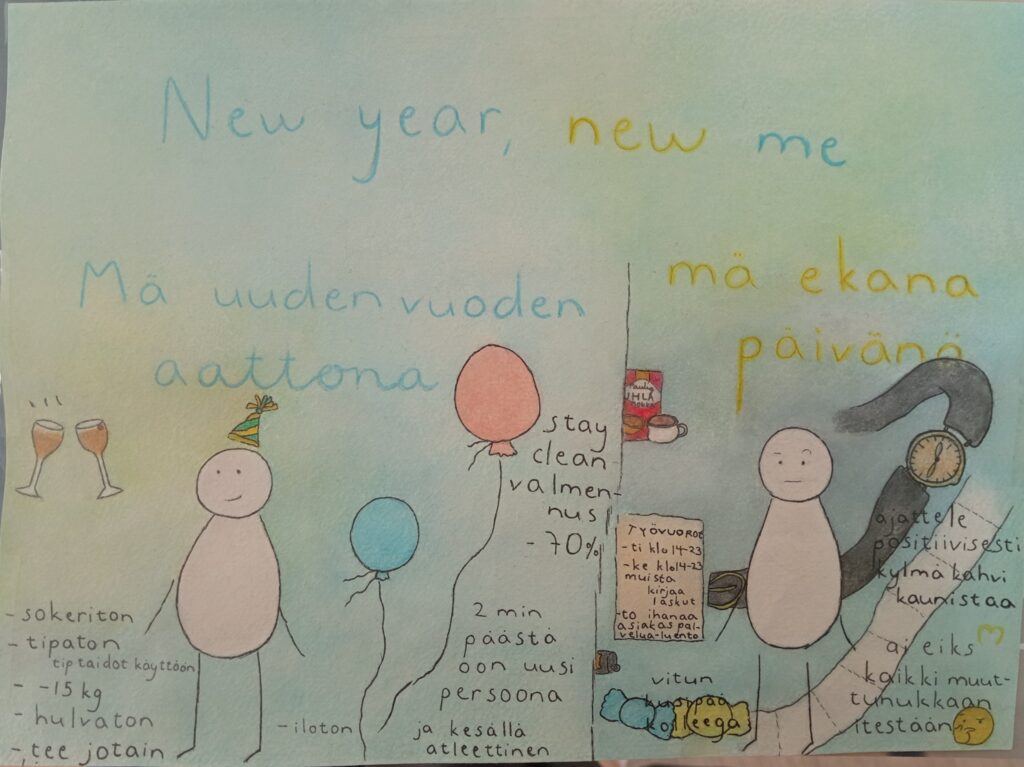 New year, new me
Mä uudenvuoden
aattona
mä ekana
päivänä
stay
clean
valmen-
nus
-70%
- sokeriton
- tipaton
tip taidot käyttöön
- -15 kg
- hulvaton
- tee jotain
- iloton
2 min
päästä
oon uusi
persoona
ja kesällä
atleettinen
Paulig
JUHLA
Mokka
TYÖVUOROT
- ti klo14-23
- ke klo14-23
muista
kirjaa
laskut
- to ihanaa
asiakaspal-
velua-luento
vitun
kusipää
kolleega
ajattele
positiivisesti
kylmä kahvi
kaunistaa
ai eiks
kaikki muut-
tunukkaan
itestään